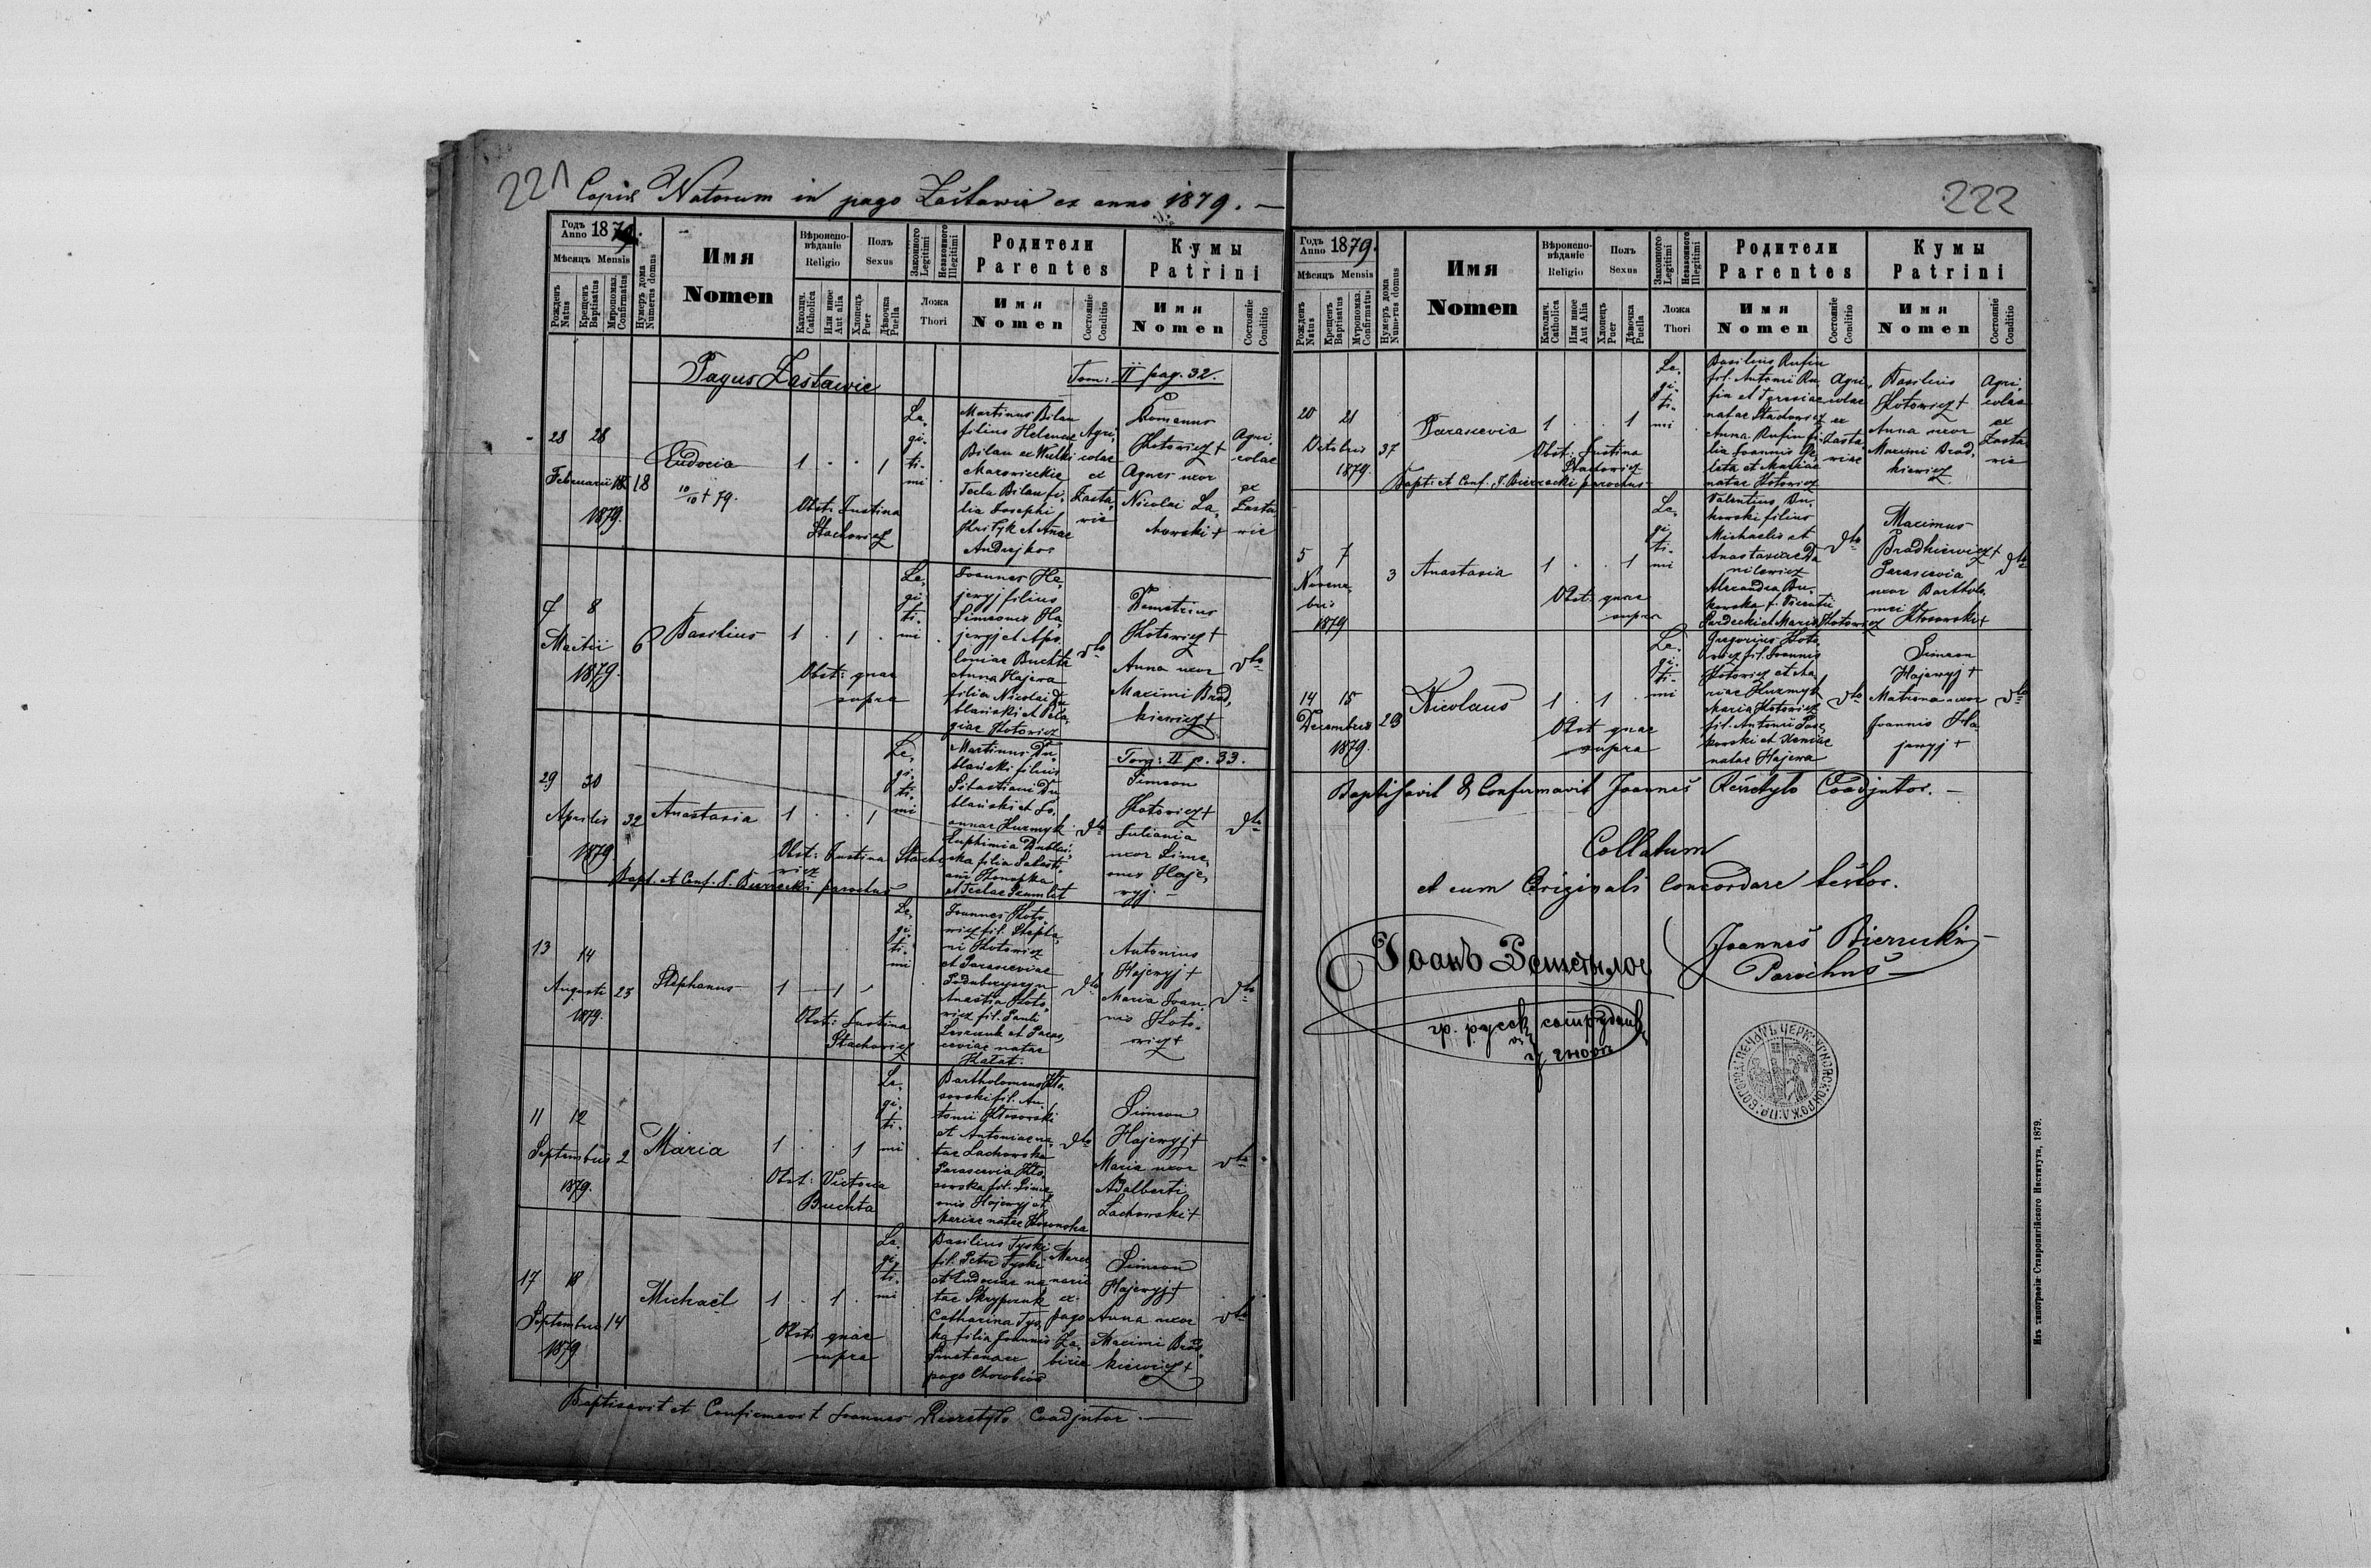 221
Copia Natorum in pago Zastawie ex anno 1879. —
Годъ
Anno 1879.
Мѣсяцъ Mensis
Рожденъ
Natus
Крещенъ
Baptisatus
Миропомаз.
Confirmatus
Нумеръ дома
Numerus domus
Имя
Nomen
Вѣроиспо-
вѣданіе
Religio
Католич.
Catholica
Или иное
Aut alia
Полъ
Sexus
Хлопецъ
Puer
Дѣвочка
Puella
Законного
Legitimi
Незаконного
Illegitimi
Ложа
Thori
Родители
Parentes
Имя
Nomen
Состояніе
Conditio
Кумы
Patrini
Имя
Nomen
Состояніе
Conditio
Pagus Zastawie
Tom: II pag. 32.
28 28
Februarii 18
1879.
Eudocia
10/10 † 79.
1 . . 1
Obst: Justina
Stachowicz
Le,
gi,
ti-
mi
Martinus Bilan
filius Helenae
Bilan ex Wulki
Mazowieckie
Tecla Bilan fi,
lia Josephi
Hrityk et Annae
Andrejkos
Agri,
colae
ex
Zasta,
wie
Romanus
Kotowicz †
Agnes uxor
Nicolai La,
chowski †
Agri,
colae
ex
Zasta,
wie
7 8
Martii 6
1879.
Basilius
1 . 1 .
Obst: quae
supra
Le,
gi,
ti-
mi
Joannes Ha,
jewyj filius
Simeonis Ha,
jewyj et Apo,
loniae Buchta
Anna Hajewa
filia Nicolai Du
blański et Pela,
giae Kotowicz
dto
Demetrius
Kotowicz †
Anna uxor
Maximi Brod,
kiewicz †
dto
Tom: II p. 33.
29 30
Aprilis 32
1879
Anastasia
1 . . 1
Obst: Justina Stacho
wicz
Bapt. et Conf. J. Bierzecki parochus
Le,
gi,
ti-
mi
Martinus Du,
blański filius
Sebastiani Du
blański et Jo,
annae Kuzmyk
Euphimia Dublań,
ska filia Sebasti,
ani Konopka
et Teclae
dto
Simeon
Kotowicz †
Juliania
uxor Sime,
onis Haje,
wyj. —
dto
13 14
Augusti 23
1879.
Stephanus
1 — 1 .
Obst: Justina
Stachowicz
Le,
gi,
ti-
mi
Joannes Koto,
wicz fil. Stepha,
ni Kotowicz
et Parasceviae
Anastia Koto,
wicz fil. Pauli
et Paras,
ceviae natae
dto
Antonius
Hajewyj †
Maria Joan,
nis Koto,
wicz †
dto
11 12
Septembris 2
1879.
Maria
1 . . 1
Obst: Victoria
Buchta
Le,
gi,
ti-
mi
Bartholomeus Kło,
sowski fil. An,
tonii Kłosowski
et Antoniae na,
tae Lachowska
Parascevia Kło,
sowska fil. Sime,
onis Hajewyj et
Mariae natae
dto
Simeon
Hajewyj †
Maria uxor
Adalberti
Lachowski †
dto
17 18
Septembris 14
1879
Michaël
1 . 1 .
Obst: quae
supra
Le,
gi,
ti-
mi
Basilius Tyski
fil. Petri Tyski
et Eudociae na
tae Skrypczuk
Catharina Tys,
ka filia Joannis
ex
pago Chorobrów
ex
pago
Za,
birie
Simeon
Hajewyj †
Anna uxor
Maximi Brod,
kiewicz †
dto
Baptisavit et Confirmavit Joannes Reszetyło Coadjutor —
222
Годъ
Anno 1879.
Мѣсяцъ Mensis
Рожденъ
Natus
Крещенъ
Baptisatus
Мѵропомаз.
Confirmatus
Нумеръ дома
Numerus domus
Имя
Nomen
Вѣроиспо-
вѣданіе
Religio
Католич.
Catholica
Или иное
Aut Alia
Полъ
Sexus
Хлопецъ
Puer
Дѣвочка
Puella
Законного
Legitimi
Незаконного
Illegitimi
Ложа
Thori
Родители
Parentes
Имя
Nomen
Состояніе
Conditio
Кумы
Patrini
Имя
Nomen
Состояніе
Conditio
20 21
Octobris 37
1879.
Parascevia
1 . . 1
Obst: Justina
Stachowicz
Bapt: et Conf. J. Bierzecki parochus
Le,
gi,
ti-
mi
Basilius Rufin
fil. Antonii Ru,
fin et Teresiae
natae Stachowicz
Anna Rufin fi,
lia Joannis
et Mariae
natae Kotowicz
Agri,
colae
ex
Zasta
wie
Basilius
Kotowicz †
Anna uxor
Maximi Brod,
kiewicz
Agri,
colae
ex
Zasta
wie
5 7
Novem,
bris
1879
3
Anastasia
1 . . 1
Obst: quae
supra
Le,
gi,
ti-
mi
Valentius Bu,
kowski filius
Michaelis et
Anastasiae Da
nilewicz
Alexandra Bu,
kowska f. Vicentii
et Maria Kotowicz
dto
Maximus
Brodkiewicz †
Parascevia
uxor Bartholo,
mei Kłosowski †
dto
14 15
Decembris 23
1879.
Nicolaus
1 . 1 .
Obst quae
supra
Le,
gi,
ti-
mi
Gregorius Koto,
wicz fil. Joannis
Kotowicz et Ma
riae Kuzmyk
Maria Kotowicz
fil. Antonii
et Xeniae
natae Hajewa
dto
Simeon
Hajewyj †
Matrona uxor
Joannis Ha
jewyj †
dto
Baptisavit & Confirmavit Joannes Reszetyło Coadjutor. —
Collatum
et cum Originali concordare testor.
Іоанъ Решетыло
гр. русск сотрудник
Joannes Bierzecki
Parochus —
Изъ типографіи Ставропигійского Института, 1879.